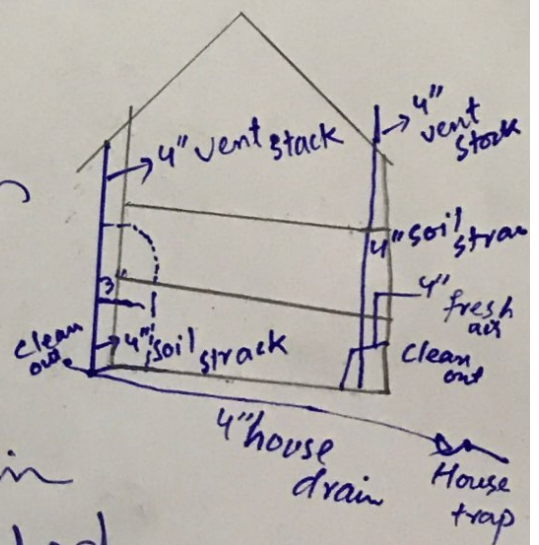 4" vent stack
4"
vent
stock
4" soil stran
3"
4"
fresh
air
clean
out
4" soil strack
clean
out
4" house
drain
House
trap
in